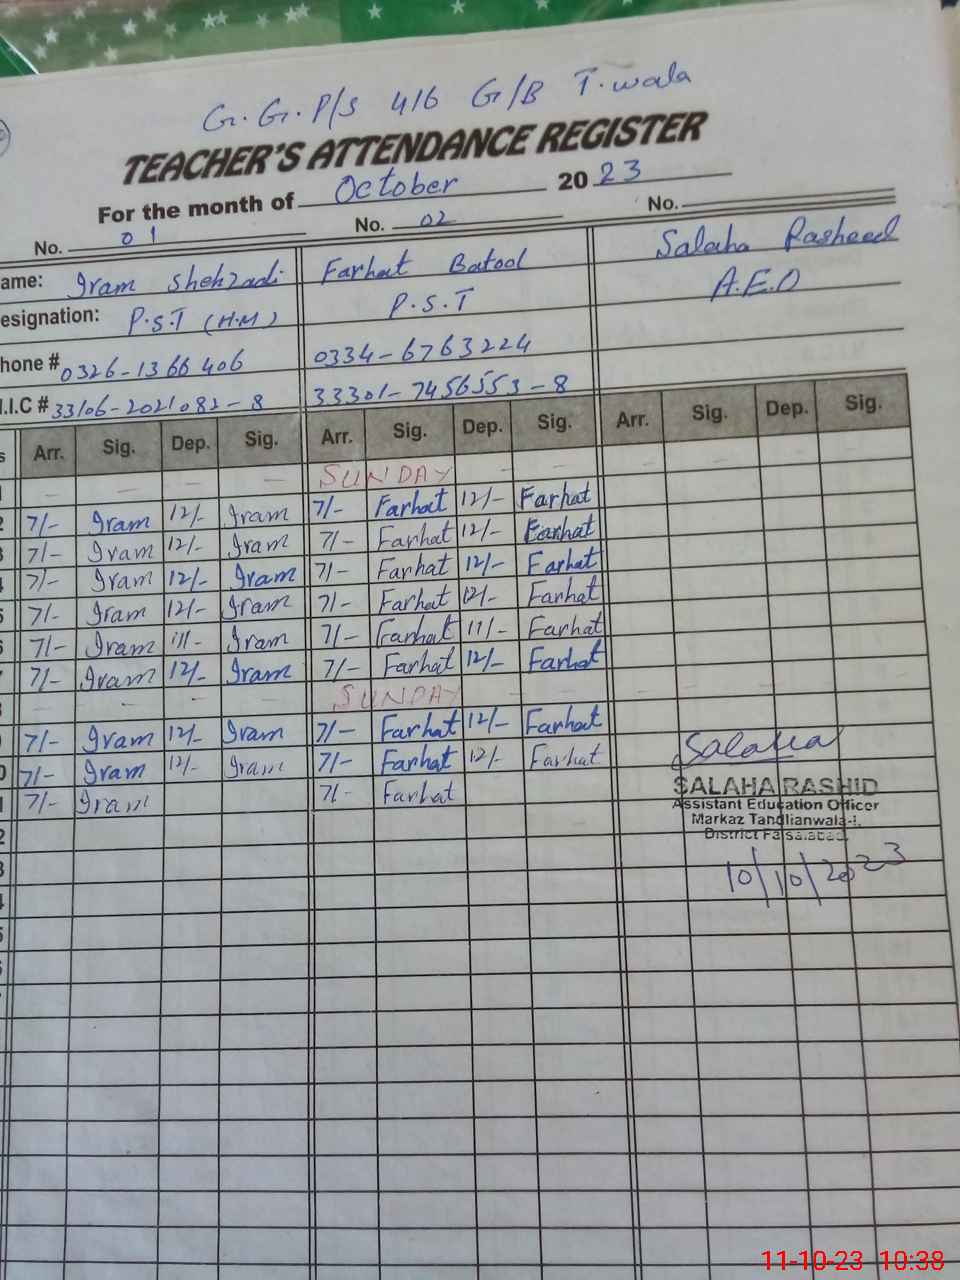 G.G.P/S 416 G/B T.wala
TEACHER'S ATTENDANCE REGISTER
For the month of October 2023
No. 01 No. 02 No.
ame: Iram Shehzadi Farhat Batool Salaha Rasheed
esignation: P.S.T (H.M) P.S.T A.E.O
hone # 0326-1366406 0334-6763224
.I.C # 33106-2021082-8 33301-7456553-8
s Arr. Sig. Dep. Sig. Arr. Sig. Dep. Sig. Arr. Sig. Dep. Sig.
1 - - - - SUNDAY - - - - - -
2 7/- Iram 12/- Iram 7/- Farhat 12/- Farhat
3 7/- Iram 12/- Iram 7/- Farhat 12/- Farhat
4 7/- Iram 12/- Iram 7/- Farhat 12/- Farhat
5 7/- Iram 12/- Iram 7/- Farhat 12/- Farhat
6 7/- Iram 11/- Iram 7/- Farhat 11/- Farhat
7 7/- Iram 12/- Iram 7/- Farhat 12/- Farhat
- - - - SUNDAY - - - - - -
7/- Iram 12/- Iram 7/- Farhat 12/- Farhat
0 7/- Iram 12/- Iram 7/- Farhat 12/- Farhat
1 7/- Iram 7/- Farhat
Salaha
SALAHA RASHID
Assistant Education Officer
Markaz Tandlianwala-I.
District Faisalabad.
10/10/2023
2
3
4
5
11-10-23 10:38